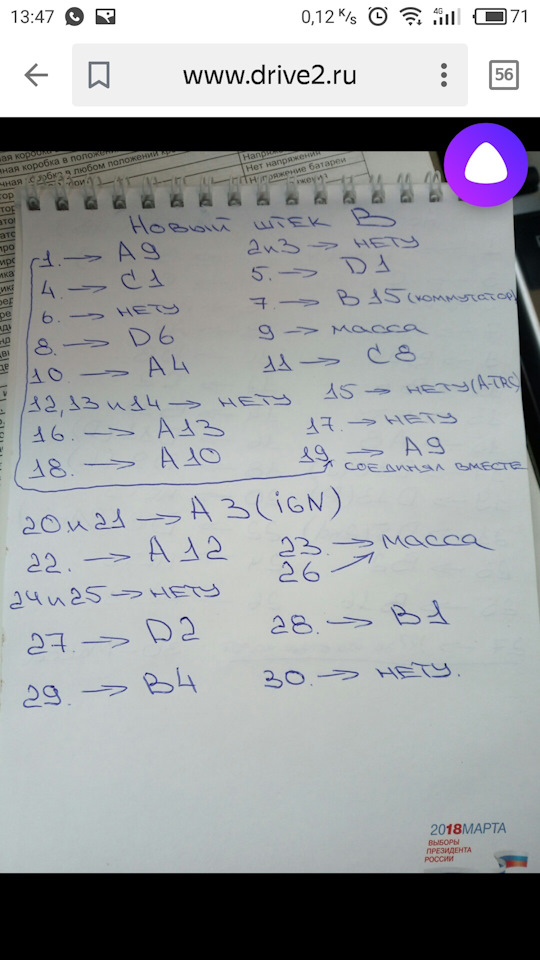 13:47
0,12 K/s
4G
71
www.drive2.ru
56
ная коробка в положени
Нет напряжения
Напряжение батареи
Новый штек B
1. → A9 2и3 → нету
4. → C1 5. → D1
6. → нету 7. → B15 (коммутатор)
8. → D6 9 → масса
10. → A4 11 → C8
12,13 и 14 → нету 15 → нету (A-TRC)
16. → A13 17. → нету
18. → A10 19. → A9
соединял вместе
20 и 21 → A3 (iGN)
22. → A12 23. → масса
26
24 и 25 → нету
27. → D2 28. → B1
29. → B4 30. → нету.
2018МАРТА
ВЫБОРЫ
ПРЕЗИДЕНТА
РОССИИ